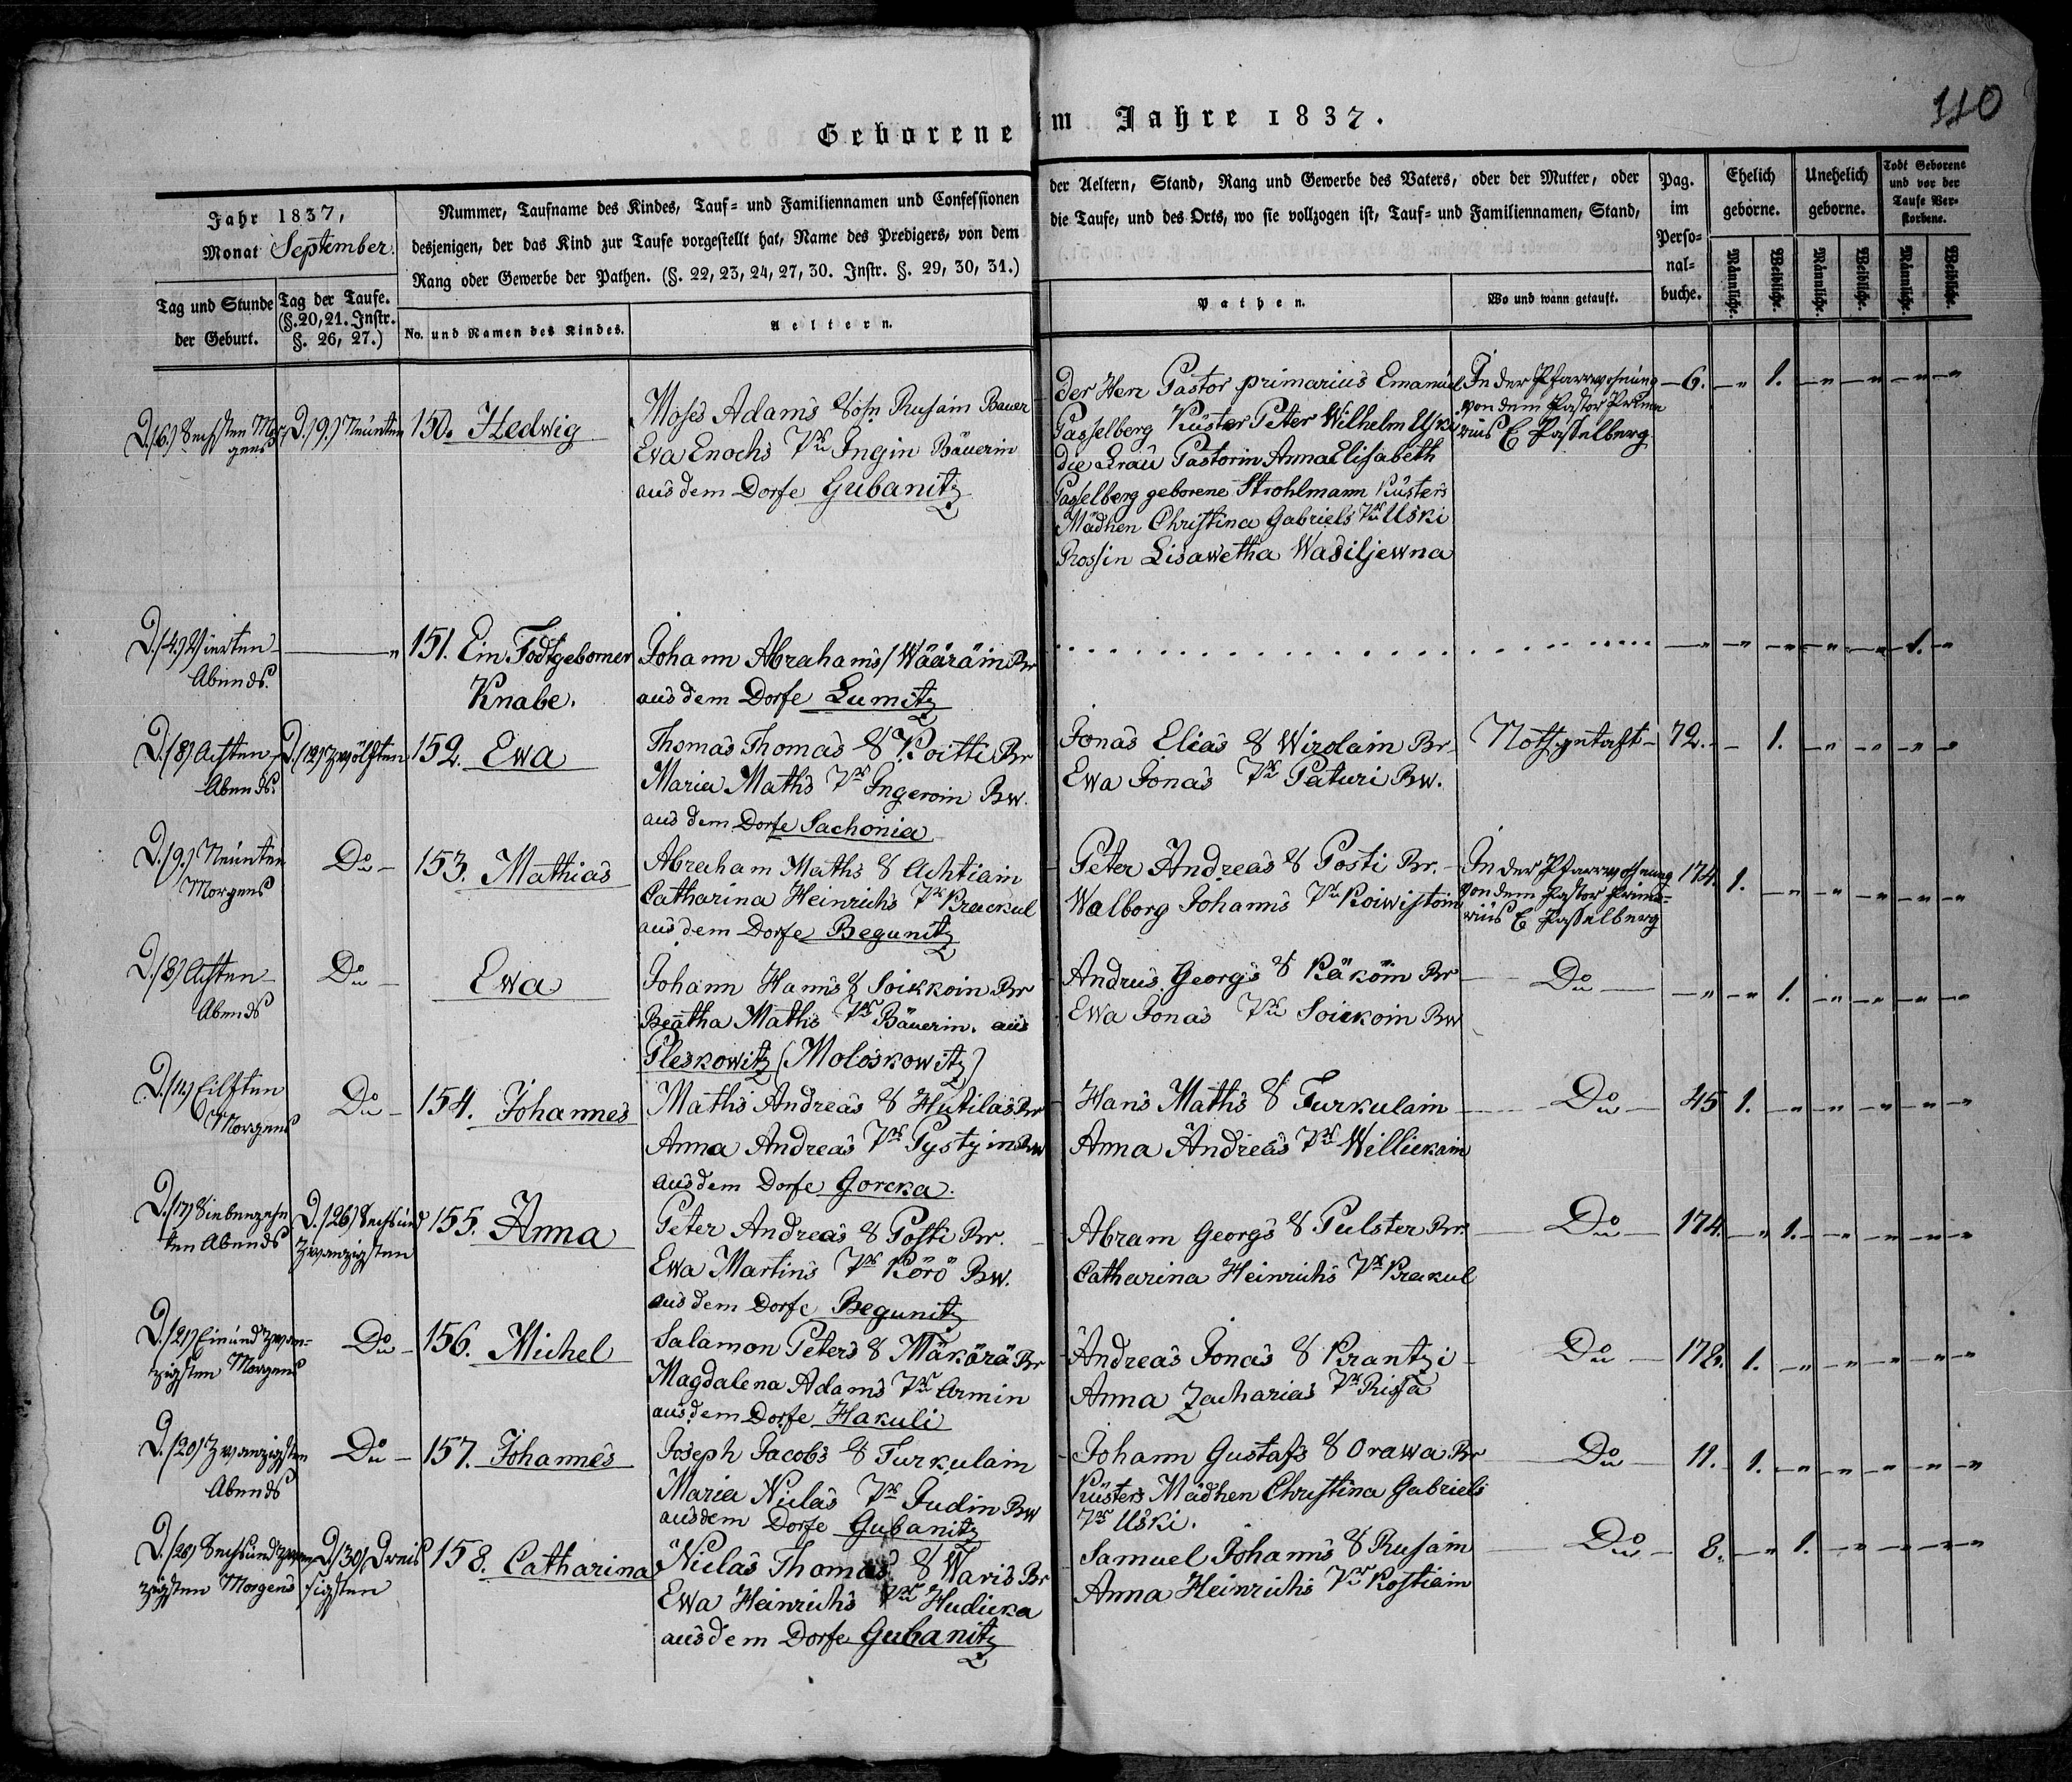 110
Geborene im Jahre 1837.
Jahr 1837,
Monat September.
Tag und Stunde
der Geburt.
Tag der Taufe.
(§. 20, 21. Instr.
§. 26, 27.)
Nummer, Taufname des Kindes, Tauf= und Familiennamen und Confessionen
desjenigen, der das Kind zur Taufe vorgestellt hat, Name des Predigers, von dem
Rang oder Gewerbe der Pathen. (§. 22, 23, 24, 27, 30. Instr. §. 29, 30, 31.)
No. und Namen des Kindes.
Aeltern.
der Aeltern, Stand, Rang und Gewerbe des Vaters, oder der Mutter, oder
die Taufe, und des Orts, wo sie vollzogen ist, Tauf= und Familiennamen, Stand,
Pathen.
Wo und wann getauft.
Pag.
im
Perso=
nal=
buche.
Ehelich
geborne.
Unehelich
geborne.
Todt Geborene
und vor der
Taufe Ver=
storbene.
Männliche.
Weibliche.
Männliche.
Weibliche.
Männliche.
Weibliche.
D. (6.) Sechsten Mor
gens
D. (9.) Neunten
150. Hedwig
Moses Adams Sohn Rusain Bauer
Ewa Enochs Tr Ingin Bäuerin
aus dem Dorfe Gubanitz
Der Herr Pastor primarius Emanuel
Passelberg Küster Peter Wilhelm Uski
die Frau Pastorin Anna Elisabeth
Passelberg geborene Strohlmann Küsters
Mädhen Christina Gabriels Tr Uski
Lisawetha Wasiljewna
In der Pfarrwohnung
von dem Pastor Prima
rius E Passelberg
6. 1.
D. (4.) Vierten
Abends.
151. Ein Todtgeborner
Knabe.
Johann Abrahams / Wääräin Br
aus dem Dorfe Lumitz
1.
D. (8) Achten
Abends.
D. (12) Zwölften
152. Ewa
Thomas Thomas S Koitti Br
Maria Maths Tr Ingeroin Bw.
aus dem Dorfe Sachonia
Jonas Elias S Wirolain Br
Ewa Jonas Tr Paturi Bw.
Nothgetaft
72. 1.
D. (9.) Neunten
Morgens
Do
153. Mathias
Abraham Maths S Achtiain
Catharina Heinrichs Tr Krackul
aus dem Dorfe Begunitz
Peter Andreas S Posti Br.
Walborg Johanns Tr Koiwistoin
In der Pfarrwohnung
von dem Pastor Prima=
rius E Passelberg
174. 1.
D. (8) Achten
Abends
Do
Ewa
Johann Hanns S Soikkoin Br
Beatha Maths Tr Bäuerin. aus
Pleskowitz (Moloskowitz)
Andrus Georgs S Käköin Br
Ewa Jonas Tr Soickoin Bw
Do
1.
D. (11) Eilften
Morgens
Do
154. Johannes
Maths Andreas S Hutilas Br
Anna Andreas Tr Pystyin Bw
aus dem Dorfe Gorcka.
Hans Maths S Turkulain
Anna Andreas Tr Willickain
Do
45 1.
D. (17) Siebenzehn
ten Abends
D. (26) Sechsund
zwanzigsten
155. Anna
Peter Andreas S Posti Br.
Ewa Martins Tr Körö Bw.
aus dem Dorfe Begunitz
Abram Georgs S Pulster Br.
Catharina Heinrichs Tr Krackul
Do
174. 1.
D. (21) Einundzwan=
zigsten Morgens
Do
156. Michel
Salamon Peters S Mäkärä Br
Magdalena Adams Tr Armin
aus dem Dorfe Hakuli
Andreas Jonas S Krantzi
Anna Zacharias Tr Rissa
Do
178. 1.
D. (20) Zwanzigsten
Abends
Do
157. Johannes
Joseph Jacobs S Turkulain
Maria Niclas Tr Judin Bw
aus dem Dorfe Gubanitz
Johann Gustafs S Orawa Br
Küsters Mädhen Christina Gabriels
Tr Uski.
Do
11. 1.
D. (26) Sechsundzwan
zigsten Morgens
D. (30) Dreis
sigsten
158. Catharina
Niclas Thomas S Waris Br
Ewa Heinrichs Tr Hudicka
aus dem Dorfe Gubanitz
Samuel Johanns S Rusain
Anna Heinrichs Tr Kostiain
Do
8. 1.